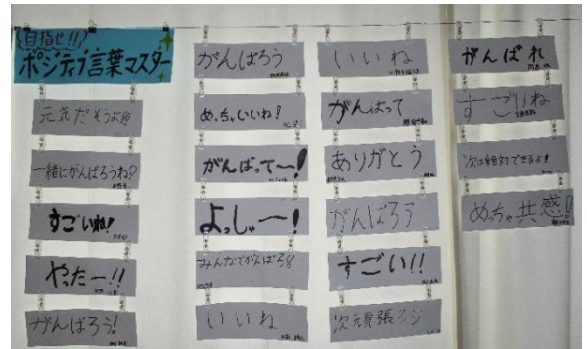 目指せ!!
ポジティブ言葉マスター
元気だそうよ!!
一緒にがんばろうね?
すごいね!
やったー!!
がんばろう!
がんばろう
めっちゃいいね!
がんばって〜!
よっしゃ〜!
みんなでがんばろう
いいね
いいね
がんばって
ありがとう
がんばろう
すごい!!
がんばれ
すごいね
次は絶対できるよ!
めっちゃ共感!